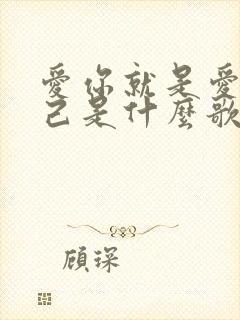 愛你就是愛
己是什麼歌
顧琛